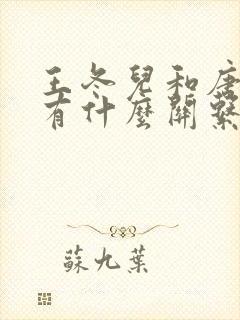 王冬兒和唐
有什麼關繫
蘇九葉